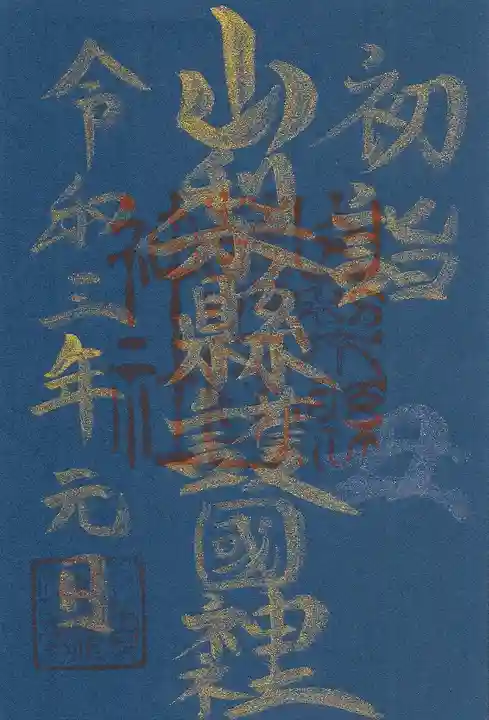 初詣
山梨縣護國神社
令和三年元旦